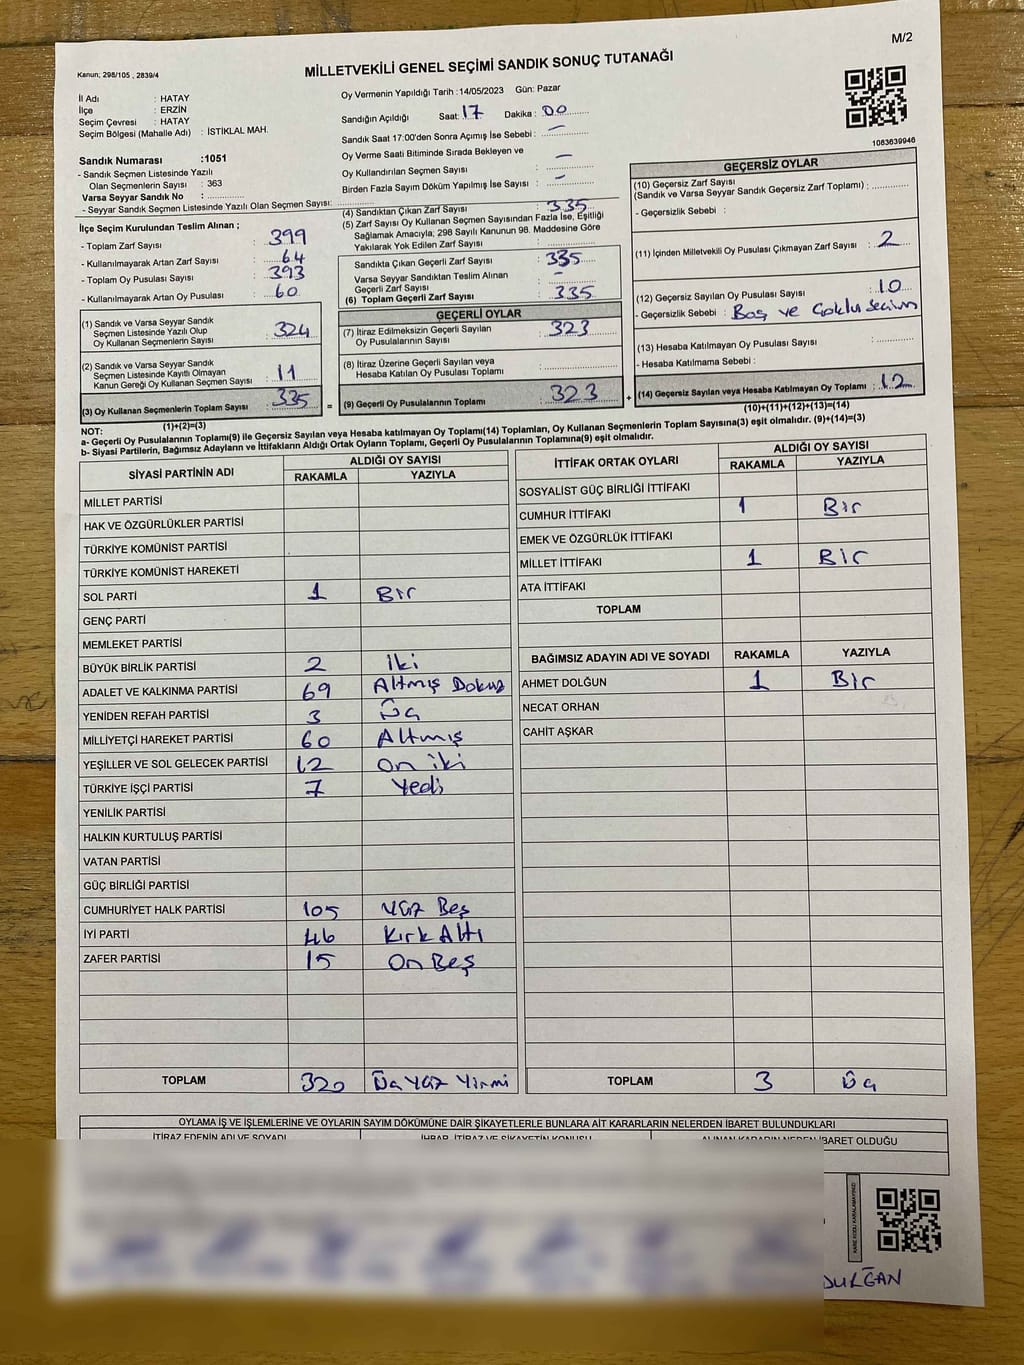 M/2
Kanun; 298/105 , 2839/4
MİLLETVEKİLİ GENEL SEÇİMİ SANDIK SONUÇ TUTANAĞI
İl Adı : HATAY
İlçe : ERZİN
Seçim Çevresi : HATAY
Seçim Bölgesi (Mahalle Adı) : İSTİKLAL MAH.
Sandık Numarası :1051
- Sandık Seçmen Listesinde Yazılı
Olan Seçmenlerin Sayısı : 363
Varsa Seyyar Sandık No :
- Seyyar Sandık Seçmen Listesinde Yazılı Olan Seçmen Sayısı:
Oy Vermenin Yapıldığı Tarih :14/05/2023 Gün: Pazar
Sandığın Açıldığı Saat: 17 Dakika : 00
Sandık Saat 17:00'den Sonra Açımış İse Sebebi : –
Oy Verme Saati Bitiminde Sırada Bekleyen ve
Oy Kullandırılan Seçmen Sayısı : –
Birden Fazla Sayım Döküm Yapılmış İse Sayısı : –
1083639946
İlçe Seçim Kurulundan Teslim Alınan ;
- Toplam Zarf Sayısı : 399
- Kullanılmayarak Artan Zarf Sayısı : 64
- Toplam Oy Pusulası Sayısı : 393
- Kullanılmayarak Artan Oy Pusulası : 60
(1) Sandık ve Varsa Seyyar Sandık
Seçmen Listesinde Yazılı Olup
Oy Kullanan Seçmenlerin Sayısı : 324
(2) Sandık ve Varsa Seyyar Sandık
Seçmen Listesinde Kayıtlı Olmayan
Kanun Gereği Oy Kullanan Seçmen Sayısı : 11
(3) Oy Kullanan Seçmenlerin Toplam Sayısı : 335
(1)+(2)=(3)
(4) Sandıktan Çıkan Zarf Sayısı : 335
(5) Zarf Sayısı Oy Kullanan Seçmen Sayısından Fazla İse, Eşitliği
Sağlamak Amacıyla, 298 Sayılı Kanunun 98. Maddesine Göre
Yakılarak Yok Edilen Zarf Sayısı :
Sandıkta Çıkan Geçerli Zarf Sayısı : 335
Varsa Seyyar Sandıktan Teslim Alınan
Geçerli Zarf Sayısı : –
(6) Toplam Geçerli Zarf Sayısı : 335
GEÇERLİ OYLAR
(7) İtiraz Edilmeksizin Geçerli Sayılan
Oy Pusulalarının Sayısı : 323
(8) İtiraz Üzerine Geçerli Sayılan veya
Hesaba Katılan Oy Pusulası Toplamı :
= (9) Geçerli Oy Pusulalarının Toplamı : 323 +
GEÇERSİZ OYLAR
(10) Geçersiz Zarf Sayısı
(Sandık ve Varsa Seyyar Sandık Geçersiz Zarf Toplamı) :
- Geçersizlik Sebebi :
(11) İçinden Milletvekili Oy Pusulası Çıkmayan Zarf Sayısı : 2
(12) Geçersiz Sayılan Oy Pusulası Sayısı : 10
- Geçersizlik Sebebi : Boş ve Çoklu Seçim
(13) Hesaba Katılmayan Oy Pusulası Sayısı :
- Hesaba Katılmama Sebebi :
(14) Geçersiz Sayılan veya Hesaba Katılmayan Oy Toplamı : 12
(10)+(11)+(12)+(13)=(14)
NOT:
a- Geçerli Oy Pusulalarının Toplamı(9) ile Geçersiz Sayılan veya Hesaba katılmayan Oy Toplamı(14) Toplamları, Oy Kullanan Seçmenlerin Toplam Sayısına(3) eşit olmalıdır. (9)+(14)=(3)
b- Siyasi Partilerin, Bağımsız Adayların ve İttifakların Aldığı Ortak Oyların Toplamı, Geçerli Oy Pusulalarının Toplamına(9) eşit olmalıdır.
SİYASİ PARTİNİN ADI ALDIĞI OY SAYISI
RAKAMLA YAZIYLA
MİLLET PARTİSİ
HAK VE ÖZGÜRLÜKLER PARTİSİ
TÜRKİYE KOMÜNİST PARTİSİ
TÜRKİYE KOMÜNİST HAREKETİ
SOL PARTİ 1 Bir
GENÇ PARTİ
MEMLEKET PARTİSİ
BÜYÜK BİRLİK PARTİSİ 2 İki
ADALET VE KALKINMA PARTİSİ 69 Altmış Dokuz
YENİDEN REFAH PARTİSİ 3 Üç
MİLLİYETÇİ HAREKET PARTİSİ 60 Altmış
YEŞİLLER VE SOL GELECEK PARTİSİ 12 On iki
TÜRKİYE İŞÇİ PARTİSİ 7 Yedi
YENİLİK PARTİSİ
HALKIN KURTULUŞ PARTİSİ
VATAN PARTİSİ
GÜÇ BİRLİĞİ PARTİSİ
CUMHURİYET HALK PARTİSİ 105 Yüz Beş
İYİ PARTİ 46 Kırk Altı
ZAFER PARTİSİ 15 On Beş
TOPLAM 320 Üç Yüz Yirmi
İTTİFAK ORTAK OYLARI ALDIĞI OY SAYISI
RAKAMLA YAZIYLA
SOSYALİST GÜÇ BİRLİĞİ İTTİFAKI
CUMHUR İTTİFAKI 1 Bir
EMEK VE ÖZGÜRLÜK İTTİFAKI
MİLLET İTTİFAKI 1 Bir
ATA İTTİFAKI
TOPLAM
BAĞIMSIZ ADAYIN ADI VE SOYADI RAKAMLA YAZIYLA
AHMET DOLĞUN 1 Bir
NECAT ORHAN
CAHİT AŞKAR
TOPLAM 3 Üç
OYLAMA İŞ VE İŞLEMLERİNE VE OYLARIN SAYIM DÖKÜMÜNE DAİR ŞİKAYETLERLE BUNLARA AİT KARARLARIN NELERDEN İBARET BULUNDUKLARI
İTİRAZ EDENİN ADI VE SOYADI İHBAR, İTİRAZ VE ŞİKAYETİN KONUSU ALINAN KARARIN NEDEN İBARET OLDUĞU
KARE KODU KARALAMAYINIZ!